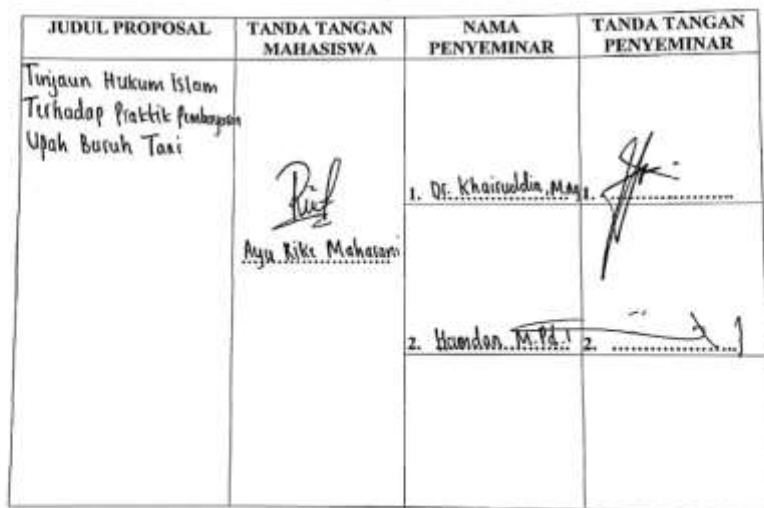 JUDUL PROPOSAL
TANDA TANGAN
MAHASISWA
NAMA
PENYEMINAR
TANDA TANGAN
PENYEMINAR
Tinjaun Hukum Islam
Terhadap Praktik Pembayaran
Upah Buruh Tani
Ayu Rike Maharani
1. Dr. Khairuddin, M.Ag
1.
2. Hamdan M.Pd.I
2.